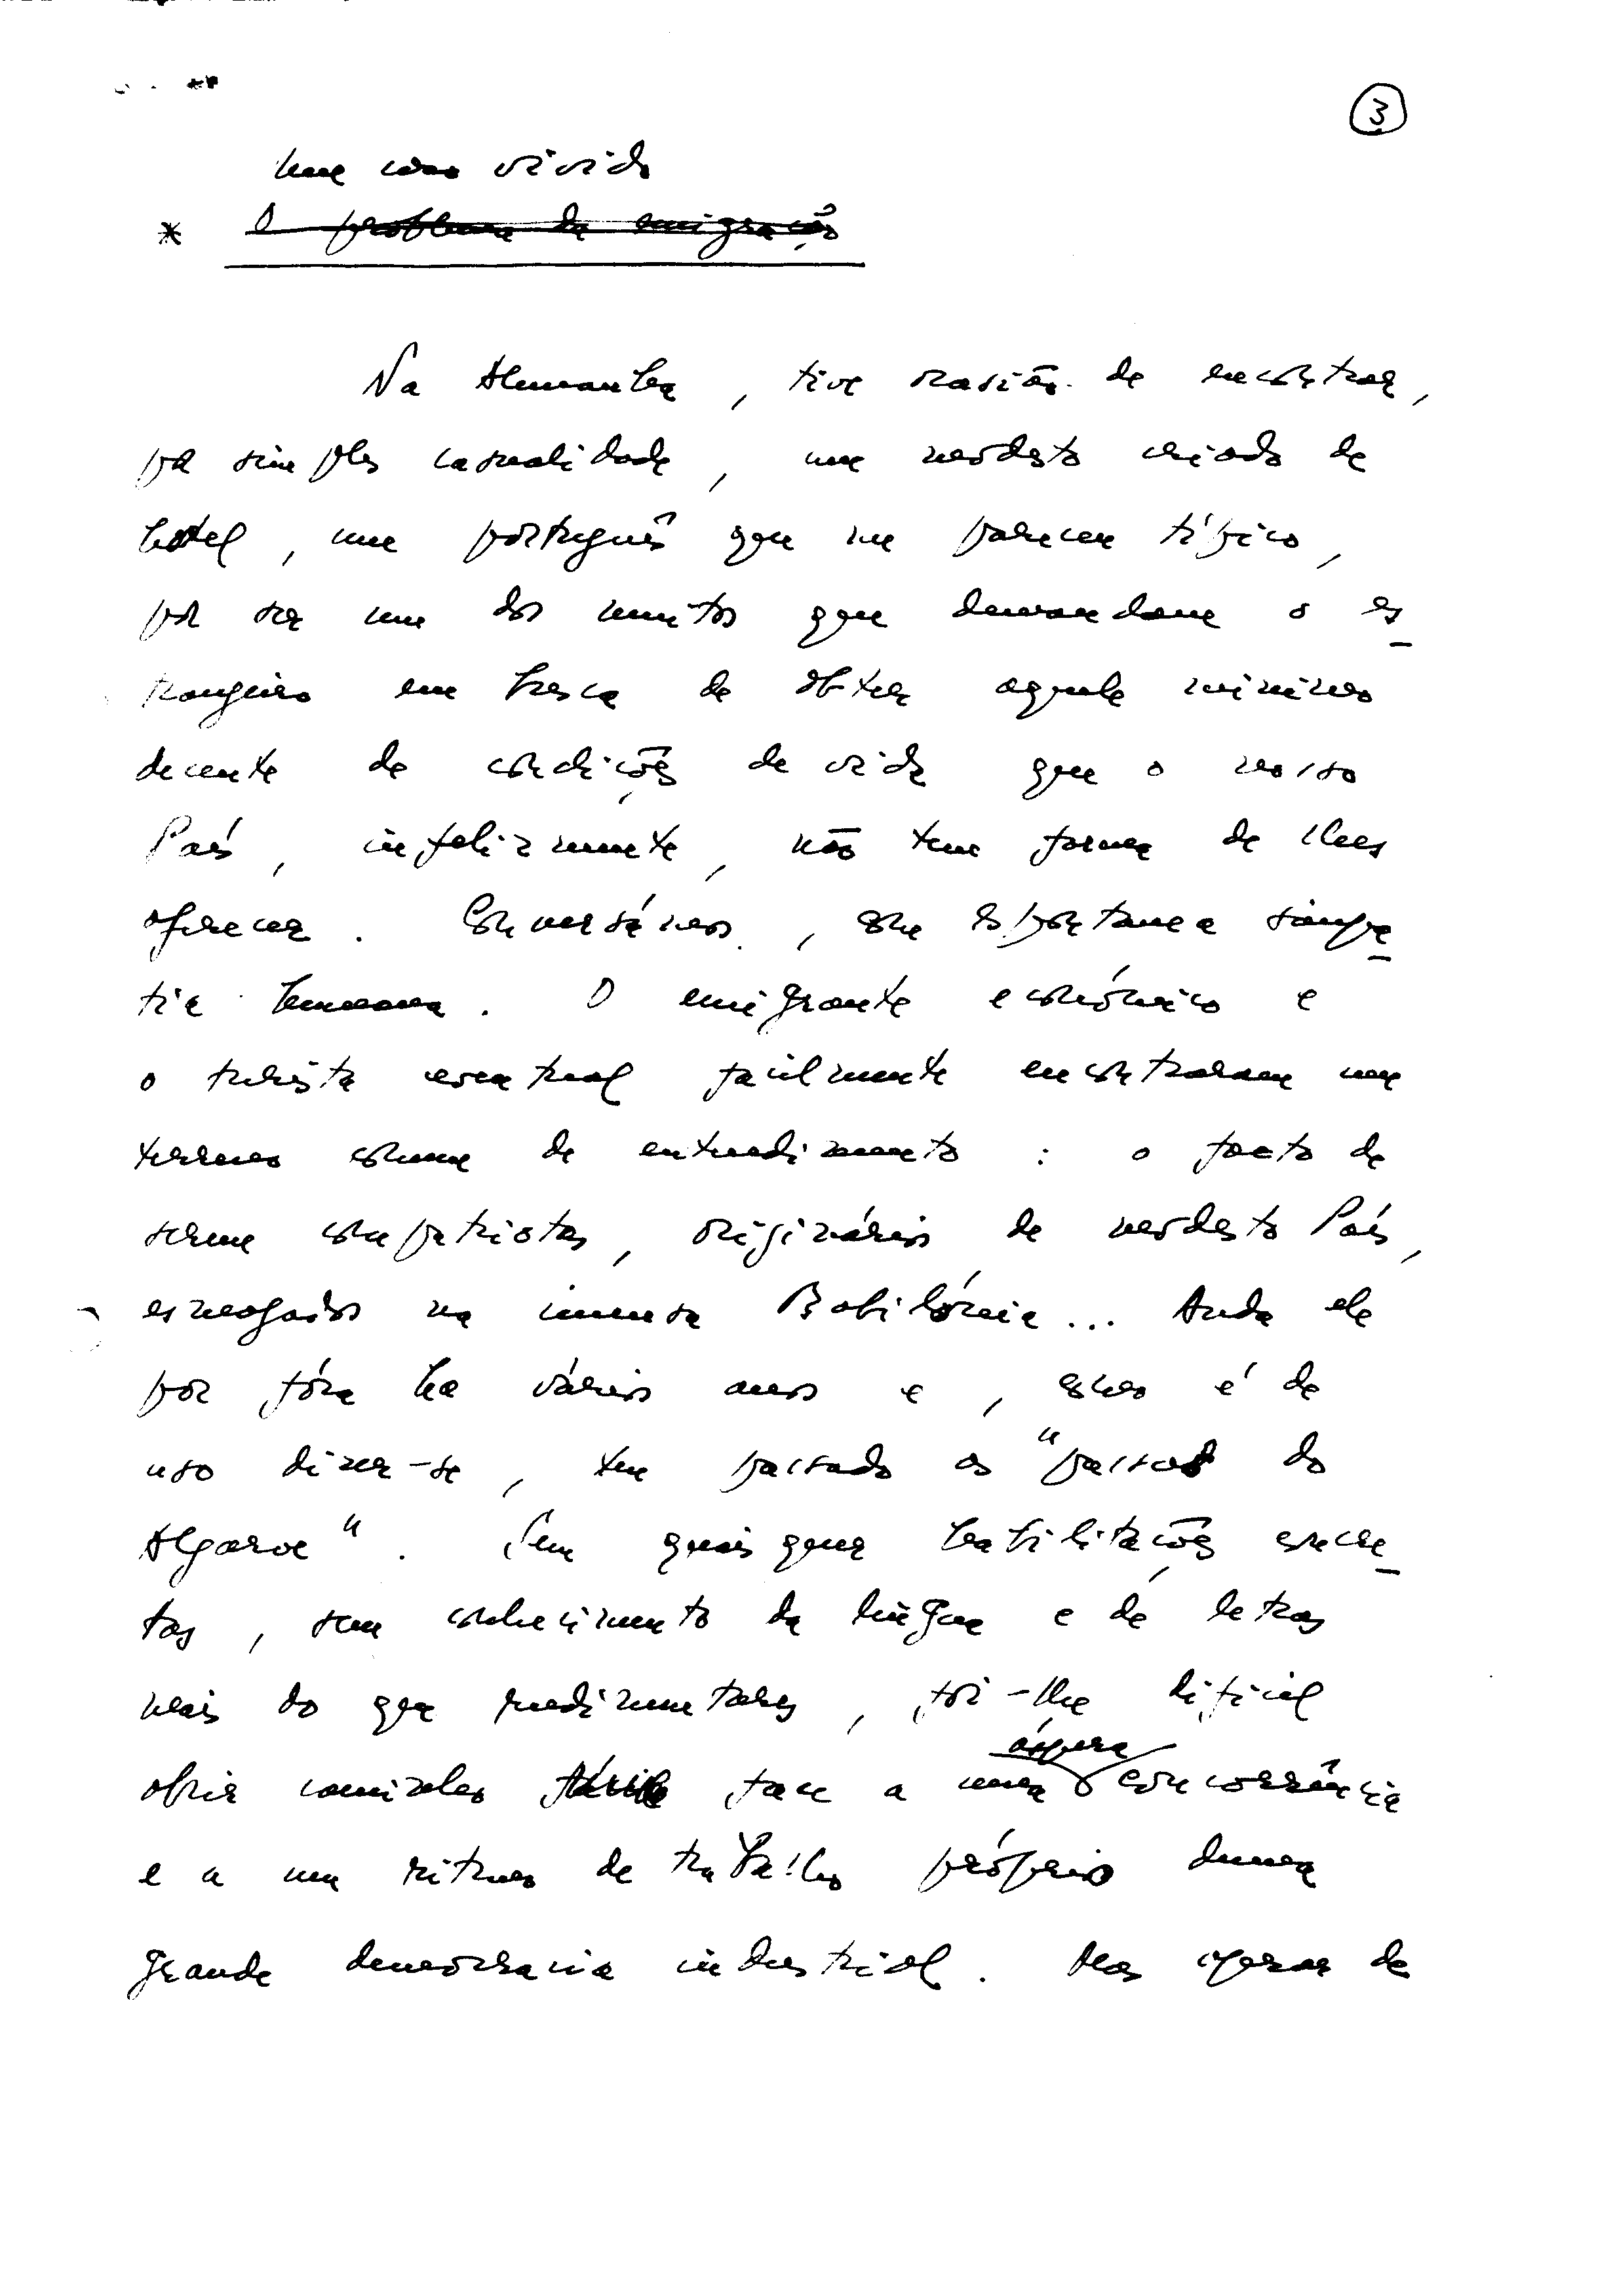 3
um caso vivido
* O problema da emigração
Na Alemanha, tive ocasião de encontrar,
por simples casualidade, um modesto criado de
hotel, um português que me pareceu típico,
por ser um dos muitos que demandam o es-
trangeiro em busca de obter aquele mínimo
decente de condições de vida que o nosso
País, infelizmente, não tem forma de lhes
oferecer. Conversámos, com espontanea simpa-
tia humana. O emigrante económico e
o turista eventual facilmente encontraram um
terreno comum de entendimento: o facto de
serem compatriotas, originários de modesto País,
esmagados na imensa Babilónia... Anda ele
por fóra ha vários anos e, como é de
uso dizer-se, tem passado os "passos do
Algarve". Sem quaisquer habilitações concre-
tas, sem conhecimento da língua e de letras
mais do que rudimentares, foi-lhe difícil
áspera
abrir caminho face a uma concorrência
e a um ritmo de trabalho próprio duma
grande democracia industrial. Mas apesar de